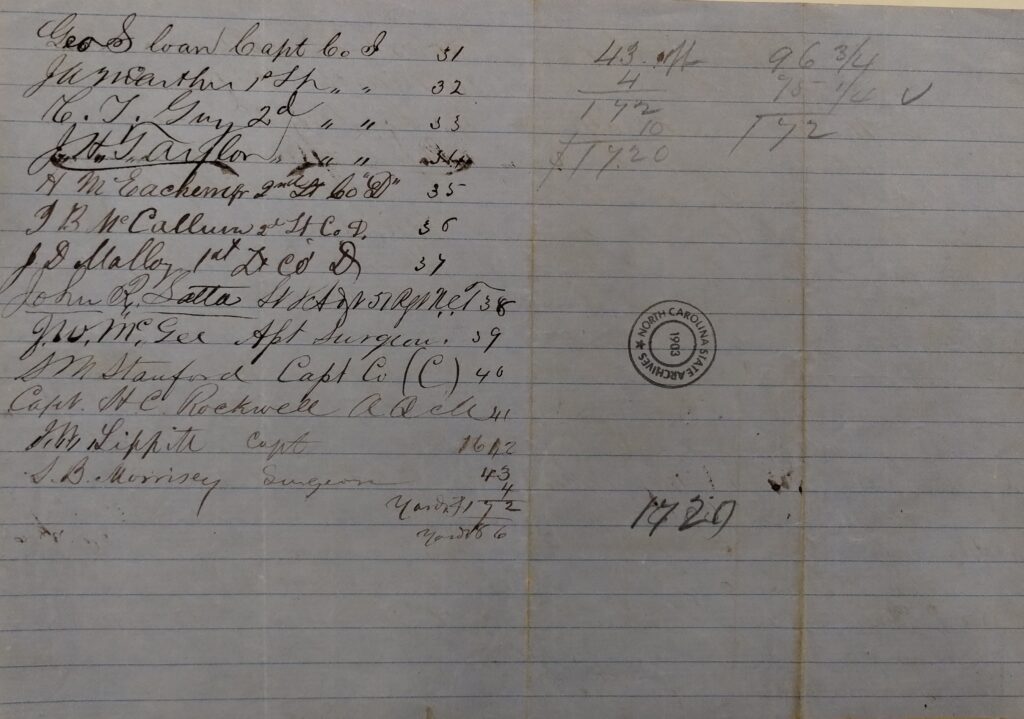 Geo S Loan Capt Co I 31
J A McArthur 1st Lt " " 32
C. T. Guy 2d " " 33
J. H. Taylor, " " 34
H McEachern 2nd Lt Co "D" 35
J B McCallum 2d Lt Co D. 36
J D Malloy 1st Lt Co D 37
John R. Latta Lt & Adjt 51 Regt N.C.T 38
J. W. McGee Asst Surgeon. 39
S M Stanford Capt Co (C) 40
Capt. H C. Rockwell A Q M 41
J. W. Lippitt Capt 42
S. B. Morrisey Surgeon 43
4
Yards 172
Yards 86
43 off
4
172
10
$1720
96 3/4
75 1/4
172
NORTH CAROLINA STATE ARCHIVES
1903
1720